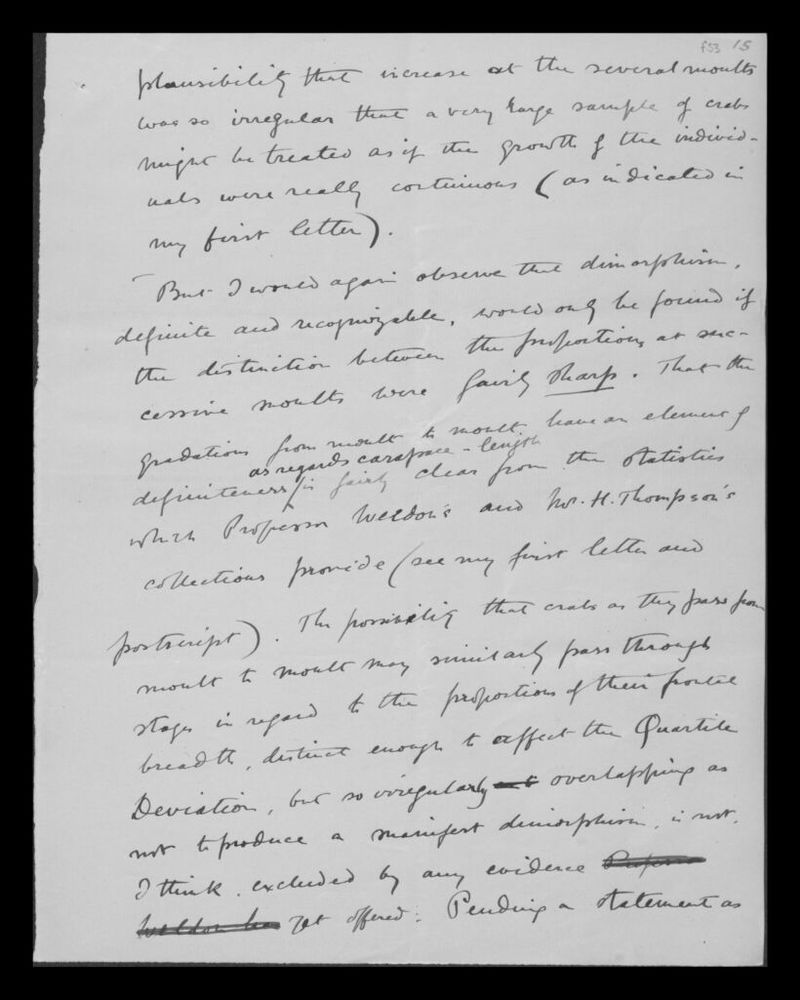 f53 15
plausibility that increase at the several moults
was so irregular that a very large sample of crabs
might be treated as if the growth of the individ-
uals were really continuous (as indicated in
my first letter).
But I would again observe that dimorphism,
definite and recognizable, would only be found if
the distinction between the proportions at suc-
cessive moults were fairly sharp. That the
gradations from moult to moult have an element of
as regards carapace-length
definiteness is fairly clear from the statistics
which Professor Weldon's and Mr. H. Thompson's
collections provide (see my first letter and
postscript). The possibility that crabs as they pass from
moult to moult may similarly pass through
stages in regard to the proportions of their frontal
breadth, distinct enough to affect the Quartile
Deviation, but so irregularly overlapping as
not to produce a manifest dimorphism, is not,
I think, excluded by any evidence Professor
Weldon has yet offered. Pending a statement as